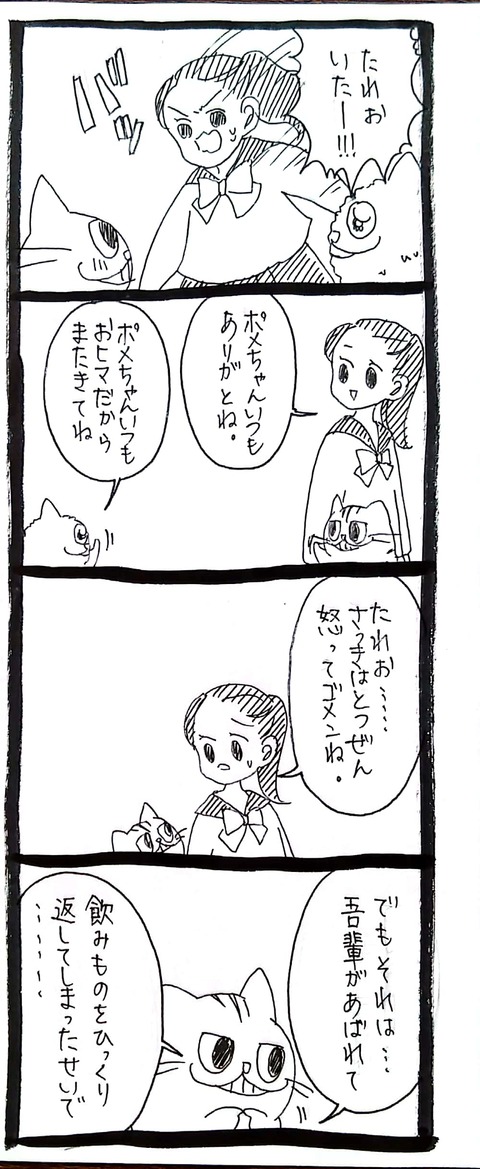 たれお
いたー!!!
バッ
ポメちゃんいつも
ありがとね。
ポメちゃんいつも
おヒマだから
またきてね
たれお……
さっきはとつぜん
怒ってゴメンね。
でもそれは…
吾輩があばれて
飲みものをひっくり
返してしまったせいで
……